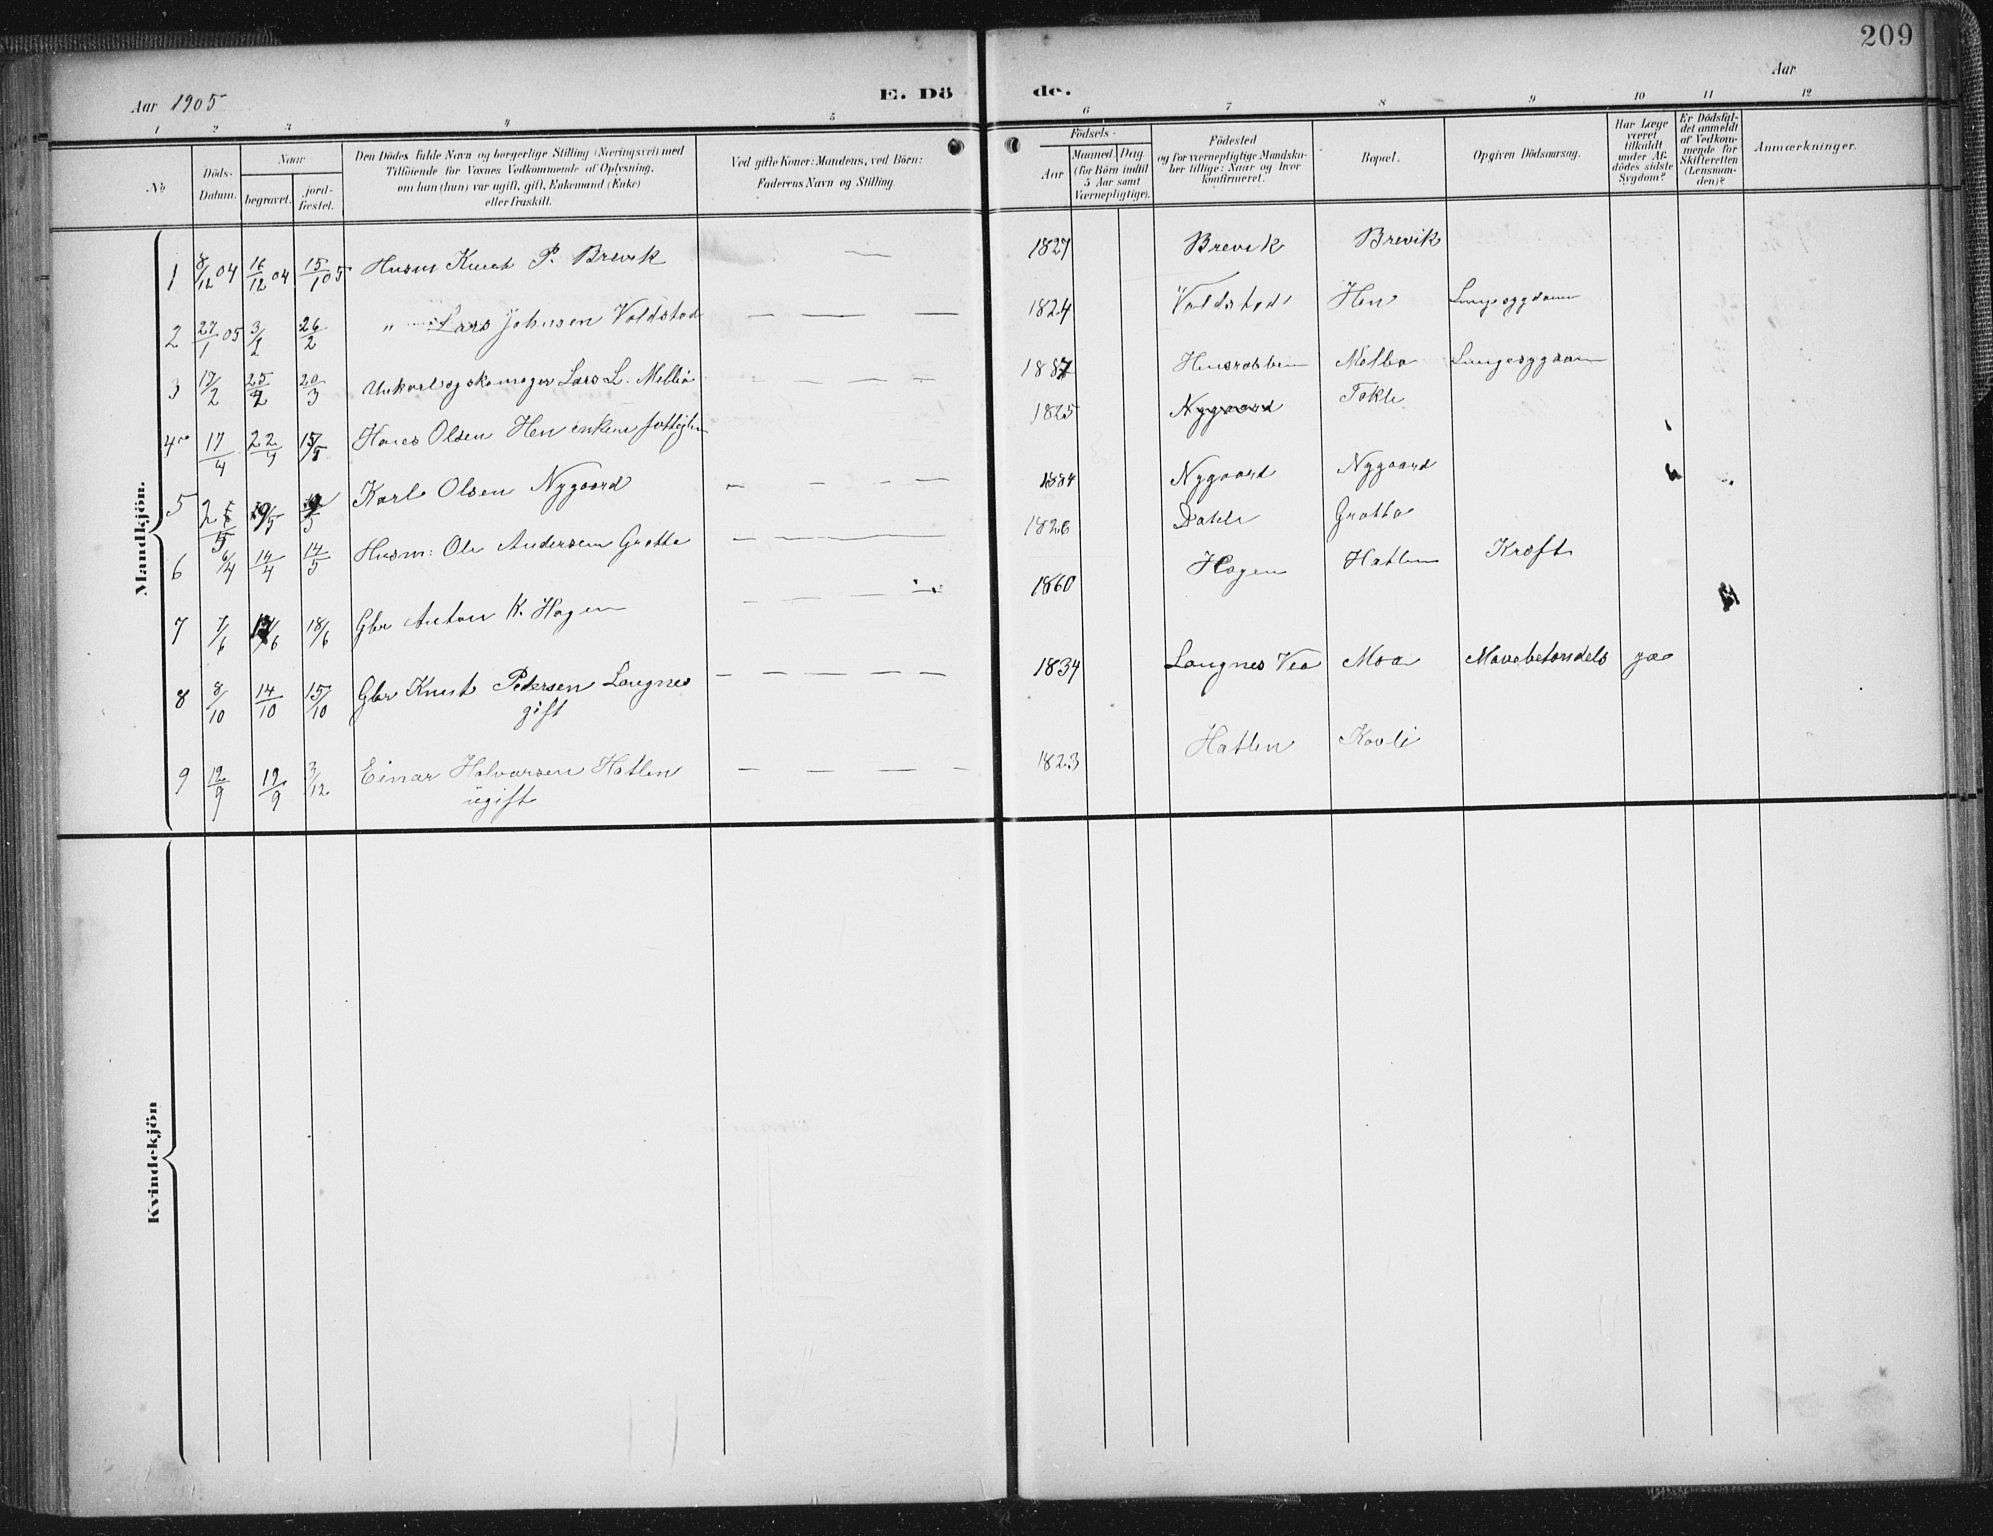 209
Aar 1905
E. Dö de.
Aar
1 2 3 4 5 6 7 8 9 10 11 12
No
Döds-Datum.
Naar
begravet.
jord-fæstet.
Den Dödes fulde Navn og borgerlige Stilling (Næringsvei) med
Tilföiende for Voxnes Vedkommende af Oplysning,
om han (hun) var ugift, gift, Enkemand (Enke)
eller fraskilt.
Ved gifte Koner: Mandens, ved Börn:
Faderens Navn og Stilling.
Födsels-
Aar
Maaned Dag.
(for Börn indtil
5 Aar samt
Værnepligtige).
Födested
og for værnepligtige Mandska-
ber tillige: Naar og hvor
konfirmeret.
Bopæl.
Opgiven Dödsaarsag.
Har Læge
været
tilkaldt
under Af-
dödes sidste
Sygdom?
Er Dödsfal-
det anmeldt
af Vedkom-
mende for
Skifteretten
(Lensman-
den)?
Anmærkninger.
Mandkjön.
1 8/12 04 16/12 04 15/1 05 Husm Knut P. Brevik — 1827 Brevik Brevik
2 27/1 05 3/2 26/2 " Lars Johnsen Voldstad — — — — 1824 Voldstad Hen Lungesygdom
3 17/2 25/2 20/3 Ungkarl og skomager Lars L. Melbø — — — — 1887 Melbo Lungesygdom
4 17/4 22/4 Olsen Hen 1825 Nygaard Tokle
5 Karl Olsen Nygaard — — — — 1884 Nygaard Nygaard
6 6/4 14/4 14/5 Husm: Ole Andersen Grotta — 1826 Dahle Grotta
7 7/6 18/6 Gbr Anton K. Hagen — — — — 1860 Hagen Hatlen Kræft
8 8/10 14/10 15/10 Gbr Knut Pedersen Langnes — — — — — 1834 Langnes Veø Moa Mavebetændels ja
gift
9 12/9 19/9 3/12 Einar Halvorsen Hatlen — — — — 1823 Hatlen Kavli
ugift
Kvindekjön